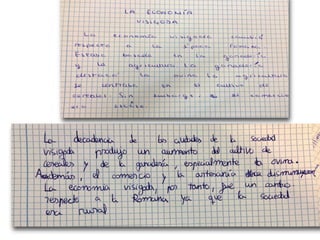 LA ECONOMÍA
VISIGODA
La economía visigoda cambió
respecto a la época romana.
Estaba basada en la ganadería
y la agricultura. La ganadería
destacó la ovina. La agricultura
se centraba en el cultivo de
cereales. Sin embargo el comercio
era escaso.
La decadencia de las ciudades de la sociedad
visigoda produjo un aumento del cultivo de
cereales y de la ganadería, especialmente la ovina.
Además, el comercio y la artesanía disminuyeron.
La economía visigoda, por tanto, fue un cambio
respecto a la Romana ya que la sociedad
era rural